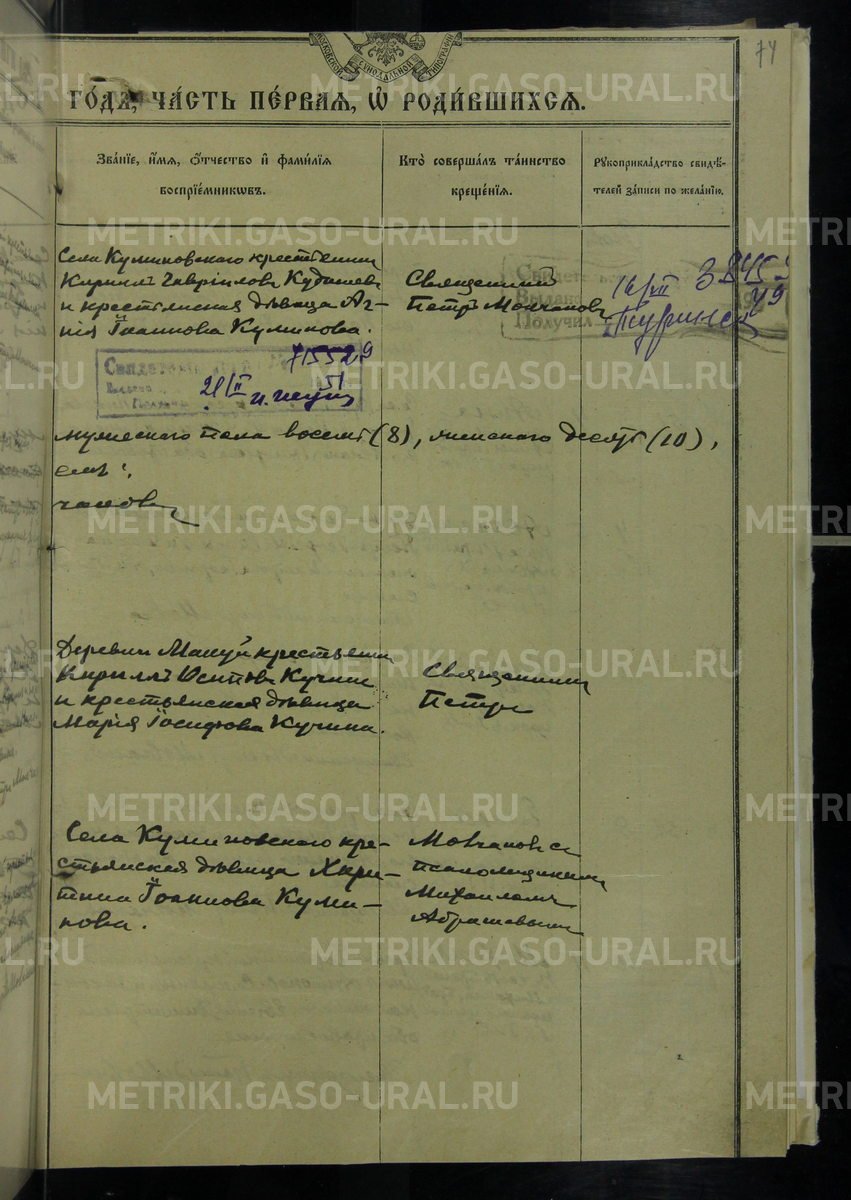 74
МОСКОВСКОЙ СѴНОДАЛЬНОЙ ТИПОГРАФІИ
ГО́ДА, ЧА́СТЬ ПЕ́РВАЯ, Ѡ҆ РОДИ́ВШИХСЯ.
Зва́нїе, и҆́мя, ѻ҆́тчество и҆ фами́лїя
воспрїе́мникѡвъ.
Кто̀ соверша́лъ та́инство
креще́нїя.
Рꙋкоприкла́дство свидѣ́-
телей за́писи по жела́нїю.
Села Куминовского крестьянин
Кириллъ Гавріилова Кудашев
и крестьянская дѣвица Аг-
нія Іоаннова Куминова.
Священник
Петръ Молчанов
Свидет
Выдано
Получил
16/VII
Туринск
49
Свидетел
71552
21/II 51
мужеского пола восемь (8), женского десять (10),
Деревни Мануй крестьянин
Кириллъ Осипова Кучин
и крестьянская дѣвица
Марія Іосифова Кучина.
Священник
Петръ
Села Куминовского кре-
стьянская дѣвица Хри-
тина Іоаннова Куми-
нова.
Молчанов с
псаломщиком
Михаиломъ
Абрашевым
METRIKI.GASO-URAL.RU